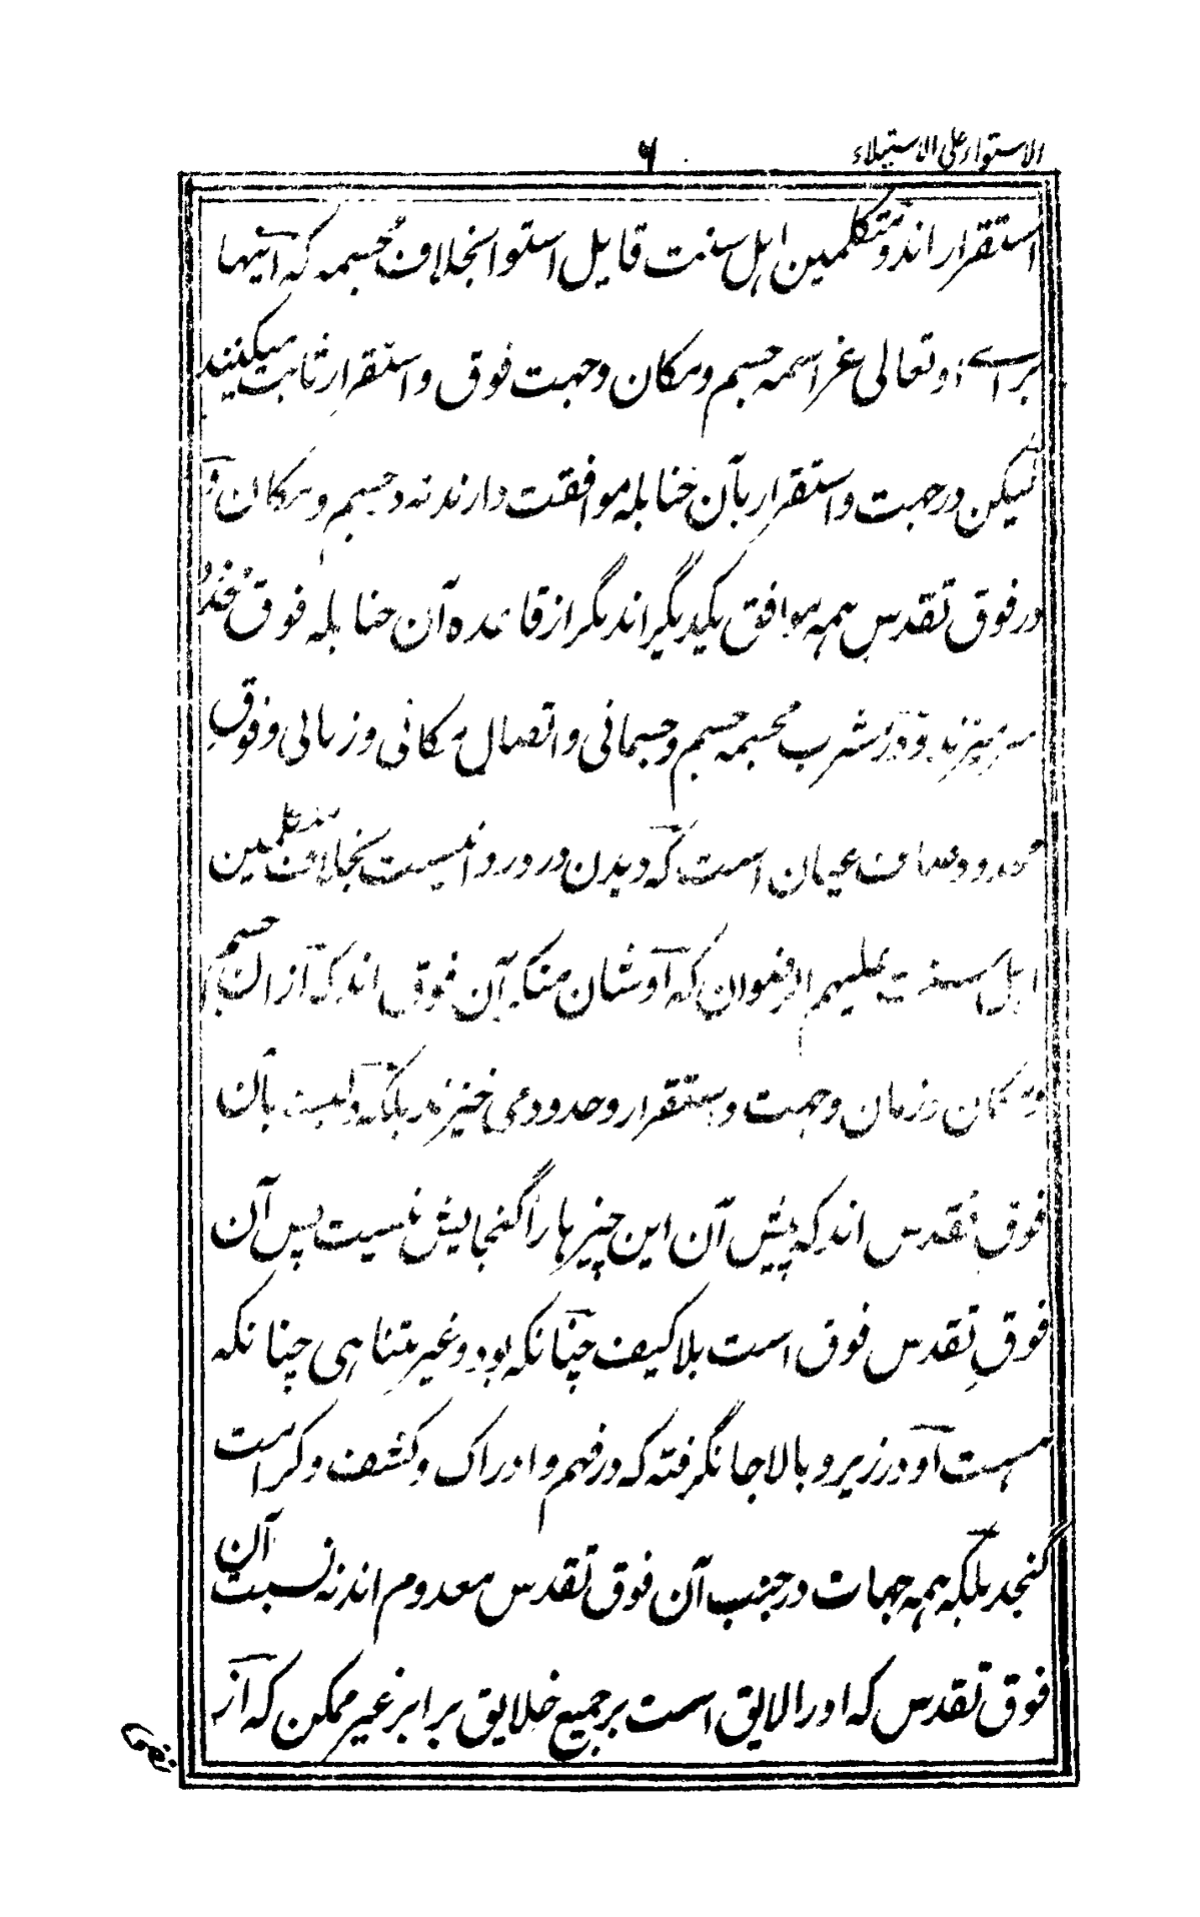 الاستواء علی الاستیلاء ۶
استقرار اند و متکلمین اہل سنت قایل استوا بخلاف مجسمہ کہ آنہا
برائے او تعالی عز اسمہ جسم و مکان و جہت فوق و استقرار ثابت میکنند
لیکن در جہت و استقرار بآن حنابلہ موافقت دارند نہ در جسم و مکان
در فوق تقدس ہمہ موافق یکدیگر اند مگر از قاعدہ آن حنابلہ فوق
مشرب مجسمہ جسم و جسمانی و اتصال مکانی و زمانی و فوق
عیان است کہ دیدن در در روا نیست بخلاف متکلمین
اہل سنت علیہم الرضوان کہ اوشان منکر آن فوق اند کہ از ان جسم
و مکان و زمان و جہت و استقرار و حدود می خیزند بلکہ بآن
فوق تقدس اند کہ پیش آن این چیزہا را گنجایش نیست پس آن
فوقِ تقدس فوق است بلا کیف چنانکہ بود و غیر متناہی چنانکہ
ہست او در زیر و بالا جا نگرفتہ کہ در فہم و ادراک و کشف و کراست
گنجد بلکہ ہمہ جہات در جنب آن فوق تقدس معدوم اند نہ نسبت آن
فوق تقدس کہ او را لایق است بر جمیع خلایق برابر غیر ممکن کہ از